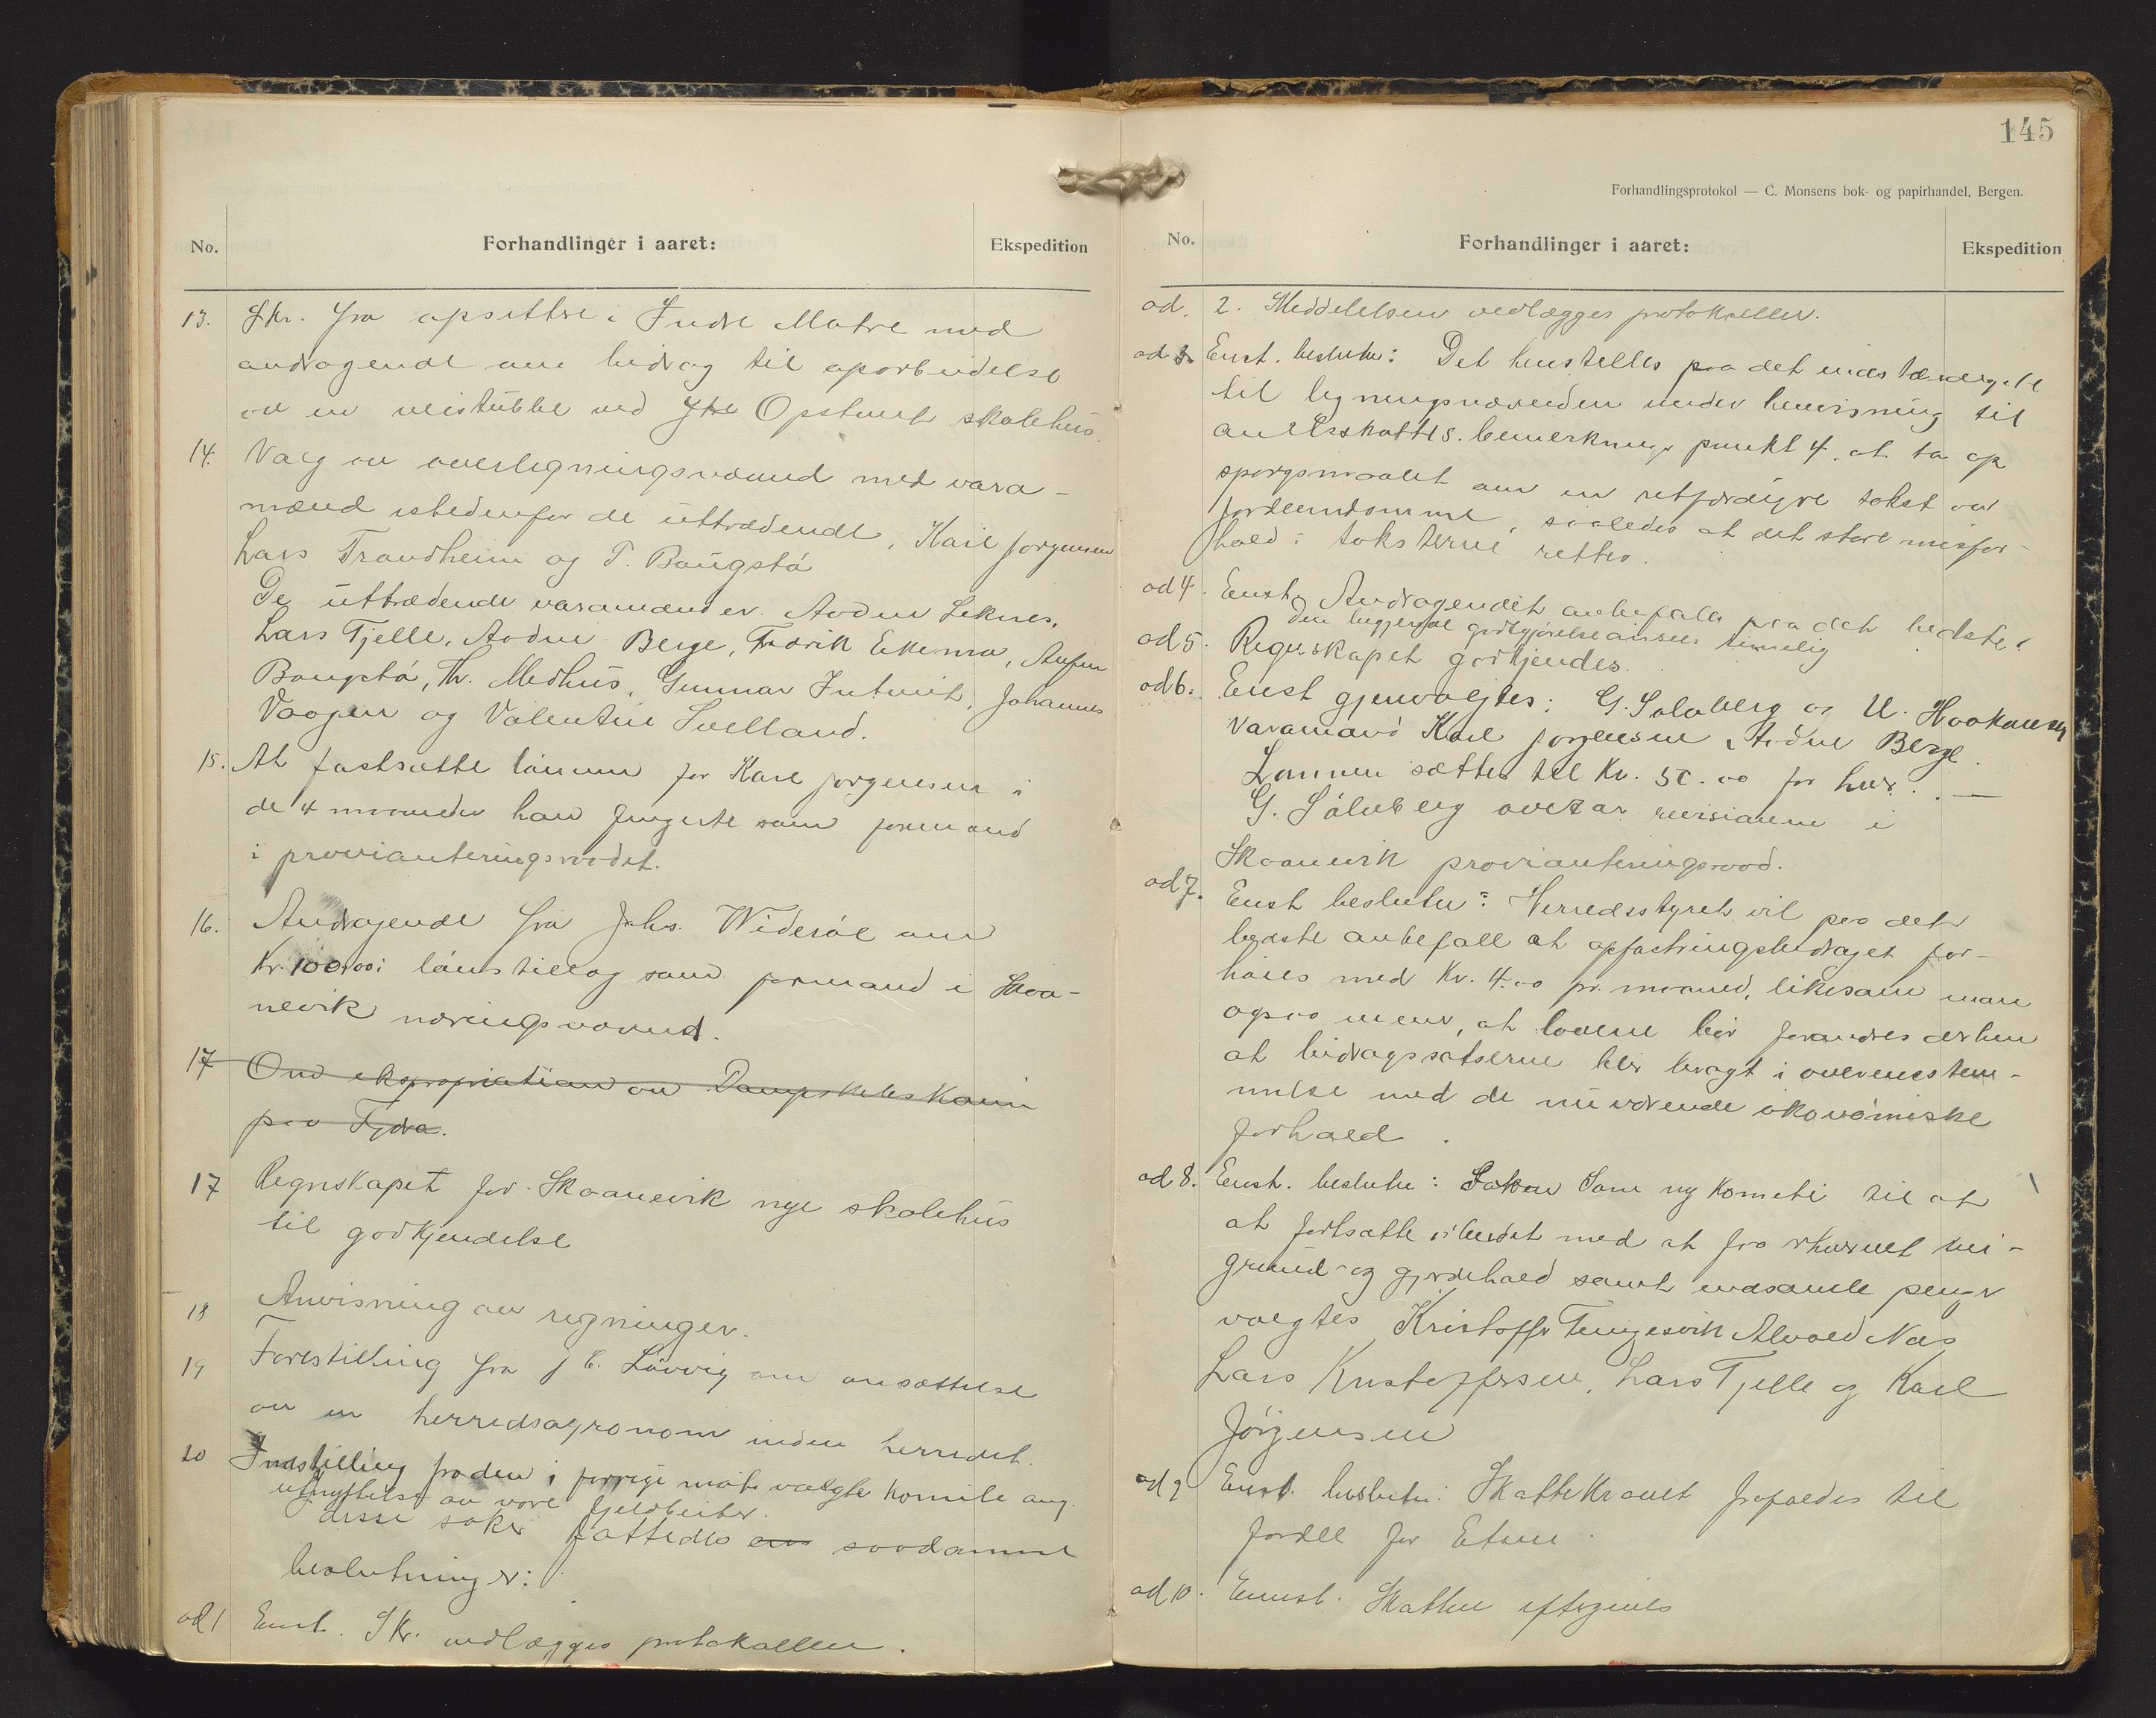 No.
Forhandlinger i aaret:
Ekspedition
13. Skr. fra opsittere i Indre Matre med
andragende om bidrag til oparbeidelse
av en veistubbe ved Ytre Opstveit skolehus.
14. Valg av overligningsnævnd med vara-
mænd istedenfor de uttrædende, Karl Jørgensen
Lars Trandheim og T. Baugstø
De uttrædende varamænd er. Audun Leknes,
Lars Tjelle, Audun Berge, Fredrik Ekema,
Baugstø, Th. Medhus, Gunnar Johannes
Vaagen og Valentin Svelland.
15. At fastsætte lønnen for Karl Jørgensen i
de 4 maaneder han fungerte som formand
i provianteringsraadet.
16. Andragende fra Johs. Widerøe om
Kr. 100.00 i lønstillæg som formand i Skaa-
nevik næringsnævnd.
17 Om ekspropriation av Dampskibskai
paa Fjæra.
17 Regnskapet for Skaanevik nye skolehus
til godkjendelse
18 Anvisning av regninger.
19 Forestilling fra J E. Løvvig om ansættelse
av en herredsagronom inden herredet.
20 Indstilling fra den i forrige møte valgte komite ang.
utnyttelse av vore fjeldbeiter.
disse saker fattedes saadanne
beslutninger:
ad 1 Enst. Skr. vedlægges protokollen.
145
Forhandlingsprotokol — C. Monsens bok- og papirhandel, Bergen.
No.
Forhandlinger i aaret:
Ekspedition
ad. 2. Meddelelsen vedlægges protokollen.
ad 3. Enst. beslutn: Det henstilles paa det indstændigste
til ligningsnævnden under henvisning til
bemerkninger punkt 4. at ta op
spørgsmaalet om en retfærdigere takst av
jordeiendomme, saaledes at det store misfor-
hold i taksterne rettes.
ad 4. Enst. Andragendet anbefales paa det bedste.
Den begjærte godtgjørelse ansees rimelig
ad 5. Regnskapet godkjendes.
ad 6. Enst gjenvalgtes: G. Sølvberg og U. Haakonsen
Varamænd Karl Jørgensen Audun Berge.
Lønnen sættes til Kr. 50.00 for hver. —
G. Sølvberg overtar revisionen i
Skaanevik provianteringsraad.
ad 7. Enst beslutn: Herredsstyret vil paa det
bedste anbefale at opfostringsbidraget for-
høies med Kr. 4.00 pr. maaned, likesom man
ogsaa mener, at lovene bør forandres derhen
at bidragssatserne blir bragt i overensstem-
melse med de nuværende økonomiske
forhold.
ad 8. Enst. beslutn: Saken Som ny komite til at
at fortsætte arbeidet med at faa vei-
grund- og gjerdehold samt indsamle penger
valgtes Kristoffer Tungesvik Alvald Næs
Lars Kristoffersen, Lars Tjelle og Karl
Jørgensen
ad 9 Enst. beslutn: Skattekravet frafaldes til
fordel for Etne.
ad 10. Enst. Skatten eftergives